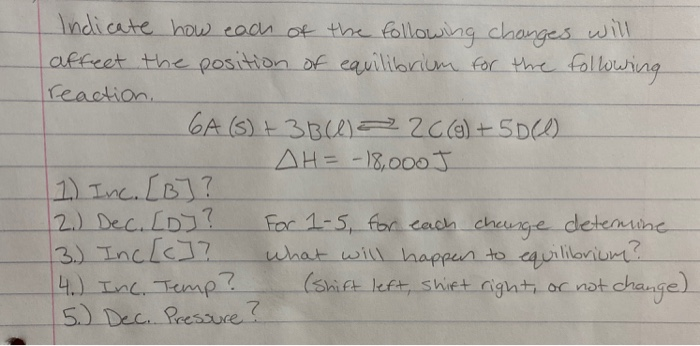 Indicate how each of the following changes will
affect the position of equilibrium for the following
reaction.
6A (s) + 3B(l) ⇌ 2C(g) + 5D(l)
ΔH = -18,000 J
1.) Inc. [B]?
2.) Dec. [D]? For 1-5, for each change determine
3.) Inc [C]? what will happen to equilibrium?
4.) Inc. Temp? (shift left, shift right, or not change)
5.) Dec. Pressure?